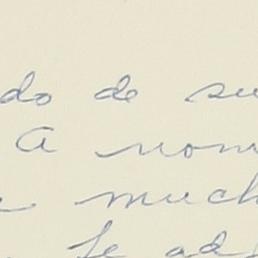 do de su
A nom
e much
te ad